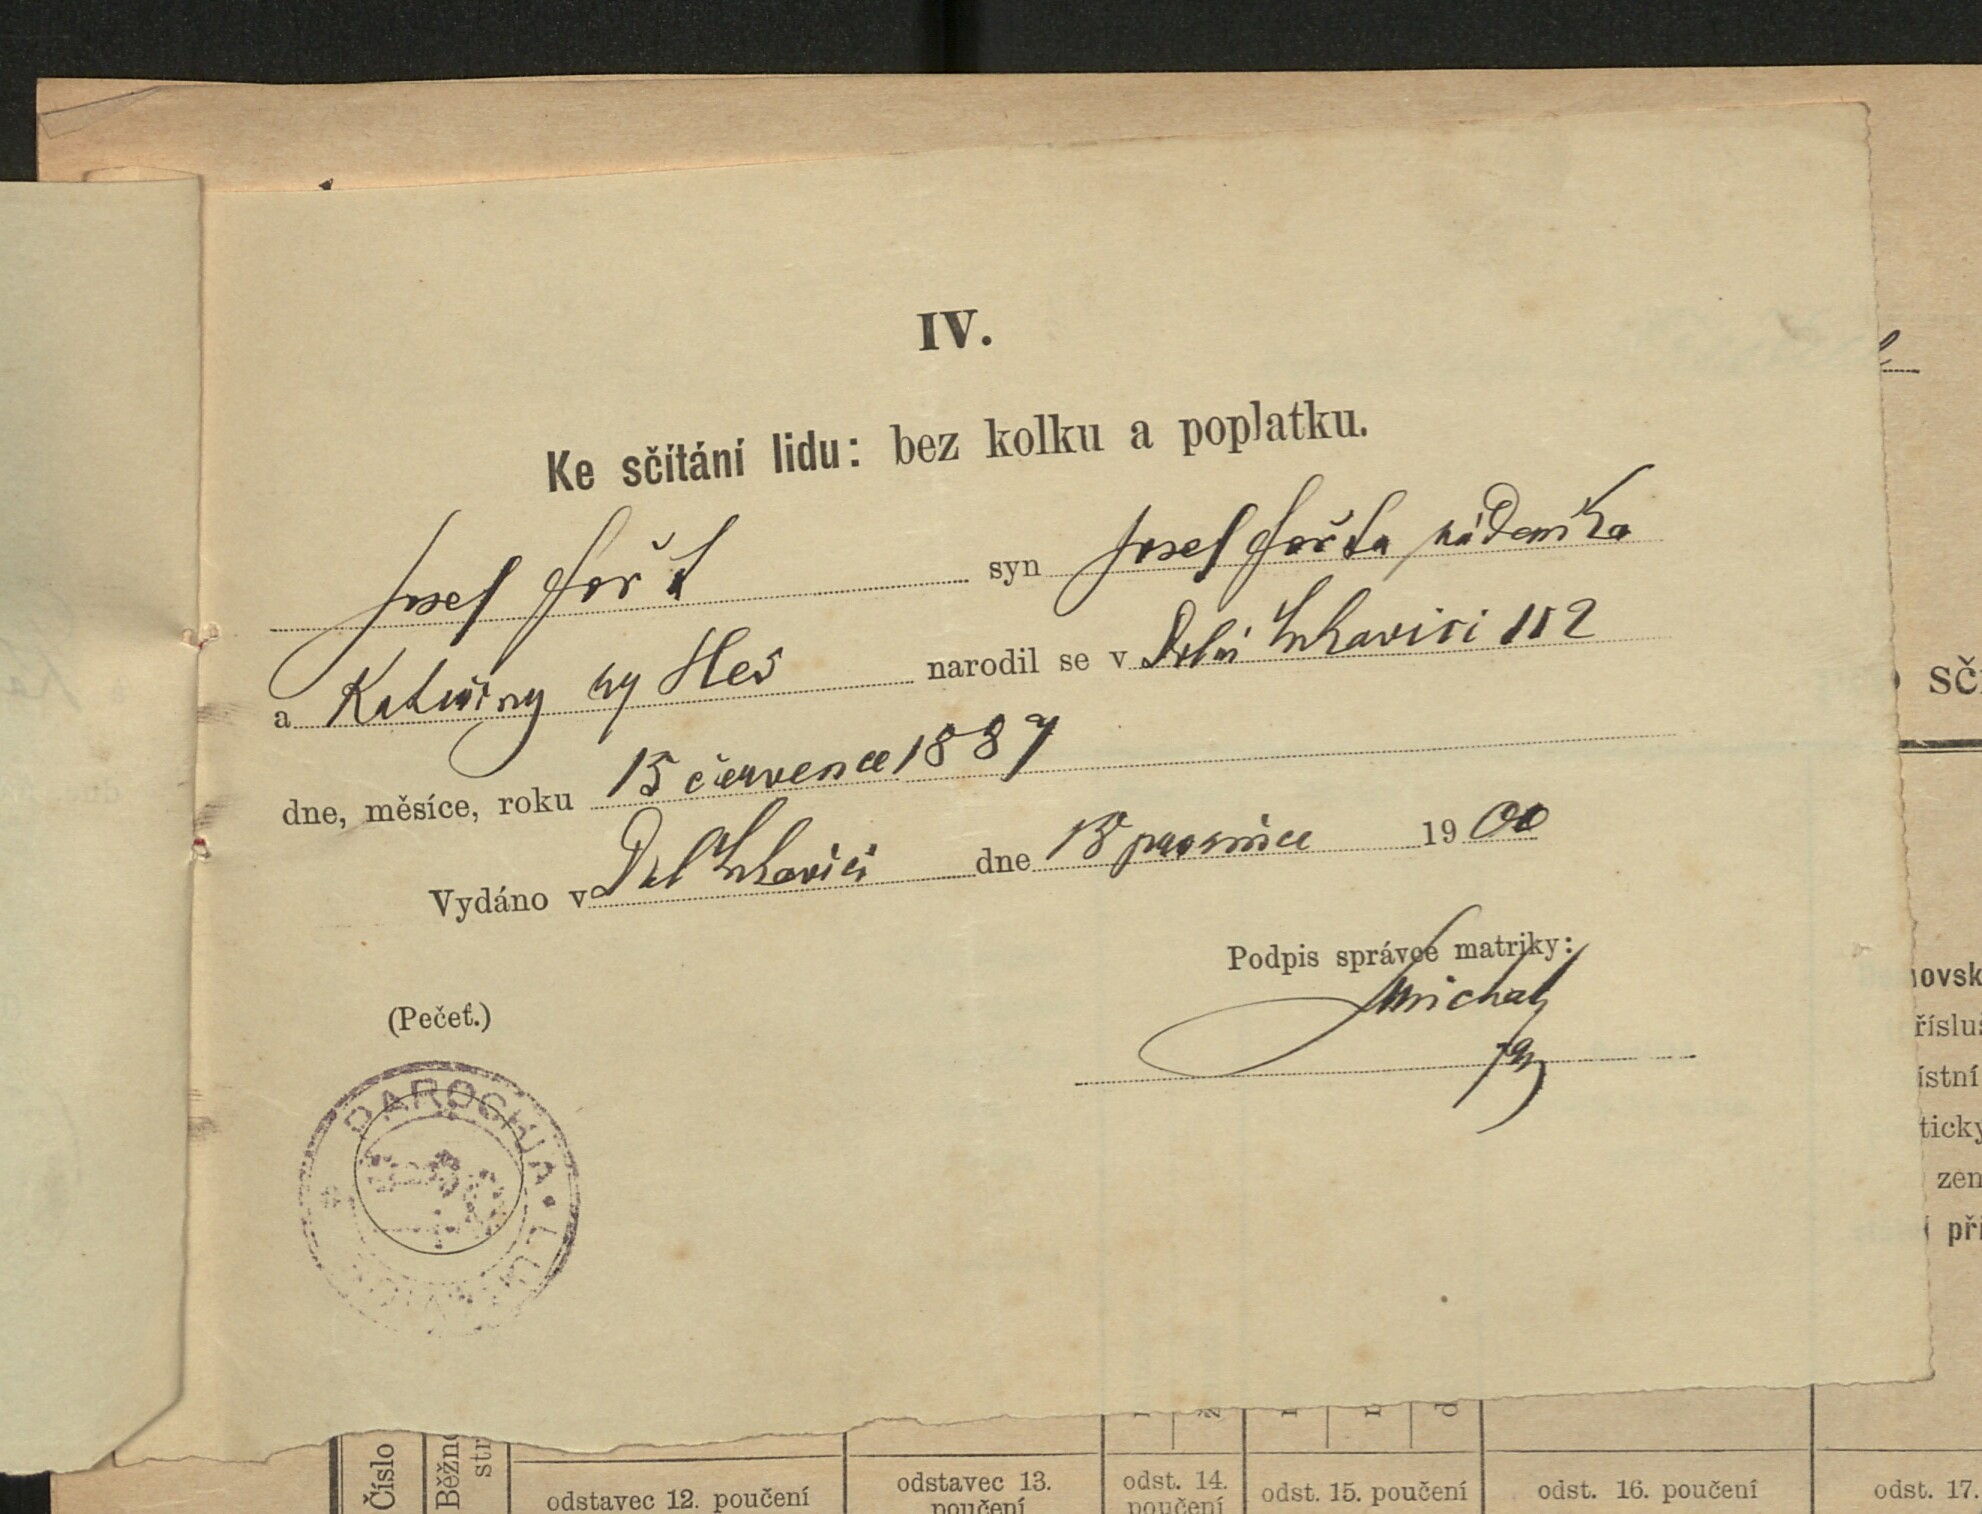 IV.
Ke sčítání lidu: bez kolku a poplatku.
Josef Fořt syn Josef Fořta nádeníka
a Kateřiny Heš narodil se v Dolní Lukavici 112
dne, měsíce, roku 15 července 1887
Vydáno v Dol Lukavici dne 18 prosince 1900
Podpis správce matriky:
Michal
(Pečeť.)
PAROCHIA
sčí
novsk
říslu
ístní
ticky
zem
pří
Číslo
Běžn
str
odstavec 12. poučení
odstavec 13.
poučení
odst. 14.
poučení
odst. 15. poučení
odst. 16. poučení
odst. 17.